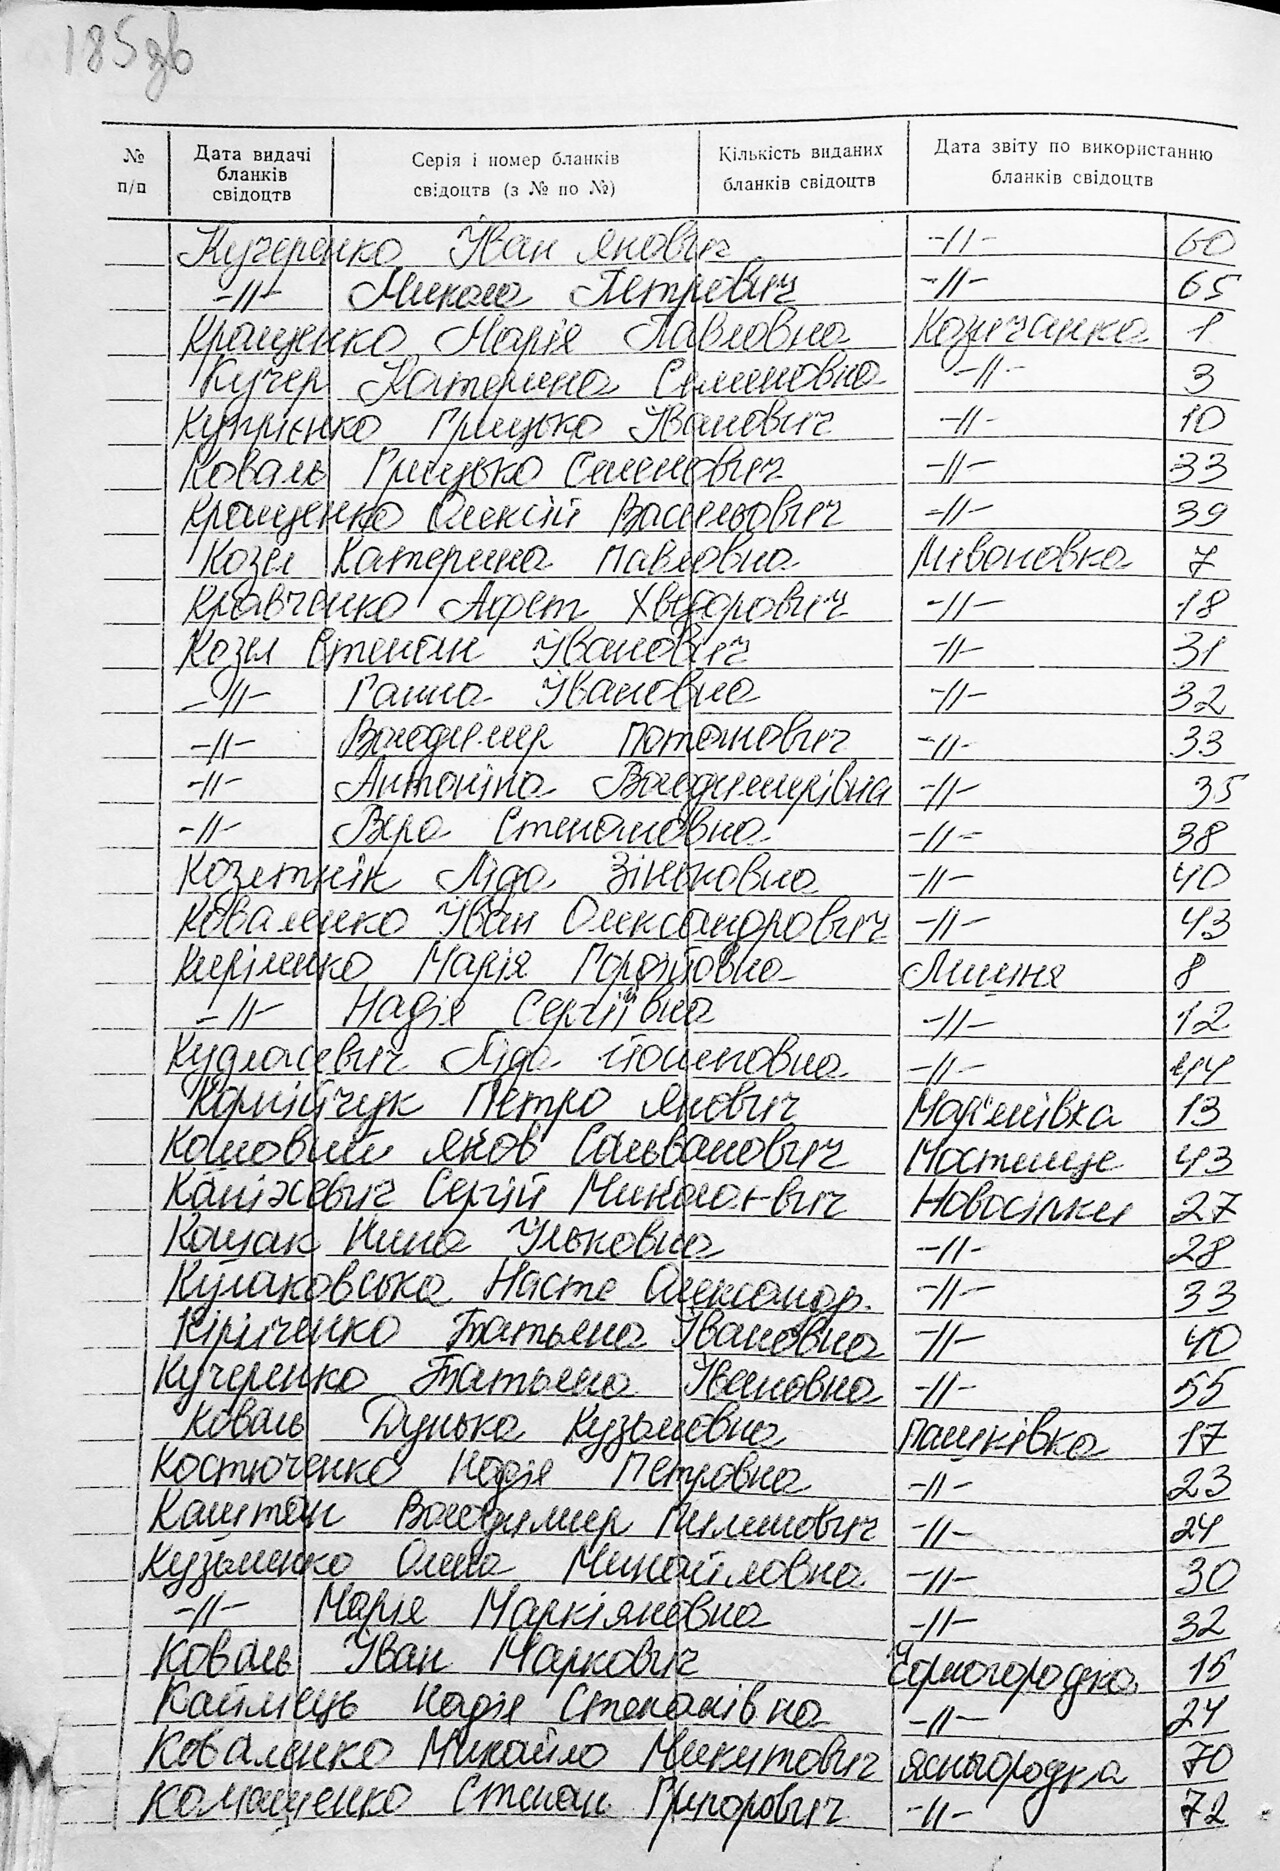 185зв
№ п/п Дата видачі бланків свідоцтв Серія і номер бланків свідоцтв (з № по №) Кількість виданих бланків свідоцтв Дата звіту по використанню бланків свідоцтв
Кучеренко Іван Янович -//- 60
-//- Микола Петрович -//- 65
Кращенко Марія Павловна Козичанка 1
Кучер Катерина Семеновна -//- 3
Купрієнко Грицько Іванович -//- 10
Коваль Грицько Семенович -//- 33
Кращенко Олексій Васильович -//- 39
Козел Катерина Павловна Мивановка 7
Кравченко Хведорович -//- 18
Козел Степан Іванович -//- 31
-//- Ганна Івановна -//- 32
-//- Володимир Потапович -//- 33
-//- Антоніна Володимирівна -//- 35
-//- Вєра Степановна -//- 38
Ліда Зіньковна -//- 40
Коваленко Іван Олександрович -//- 43
Кириленко Марія Лишня 8
-//- Надія Сергіївна -//- 12
Ліда -//- 44
Корнійчук Петро Янович Мар'янівка 13
Яков Мостище 43
Сергій Миколаєвич Новосілки 27
Кошак Нина Ільковна -//- 28
Кулаковська Настя Олександр. -//- 33
Кіріченко Татьяна Івановна -//- 40
Кучеренко Татьяна Івановна -//- 55
Коваль Дунька Кузьмовна Пашківка 17
Костюченко Надія Петровна -//- 23
Каштан Володимир Пилипович -//- 24
Кузьменко Олена Михайловна -//- 30
-//- Марія Маркіяновна -//- 32
Коваль Іван Маркович Чорногородка 15
Надія Степанівна -//- 24
Коваленко Михайло Микитович Ясныгородка 70
Комащенко Степан Григорович -//- 72